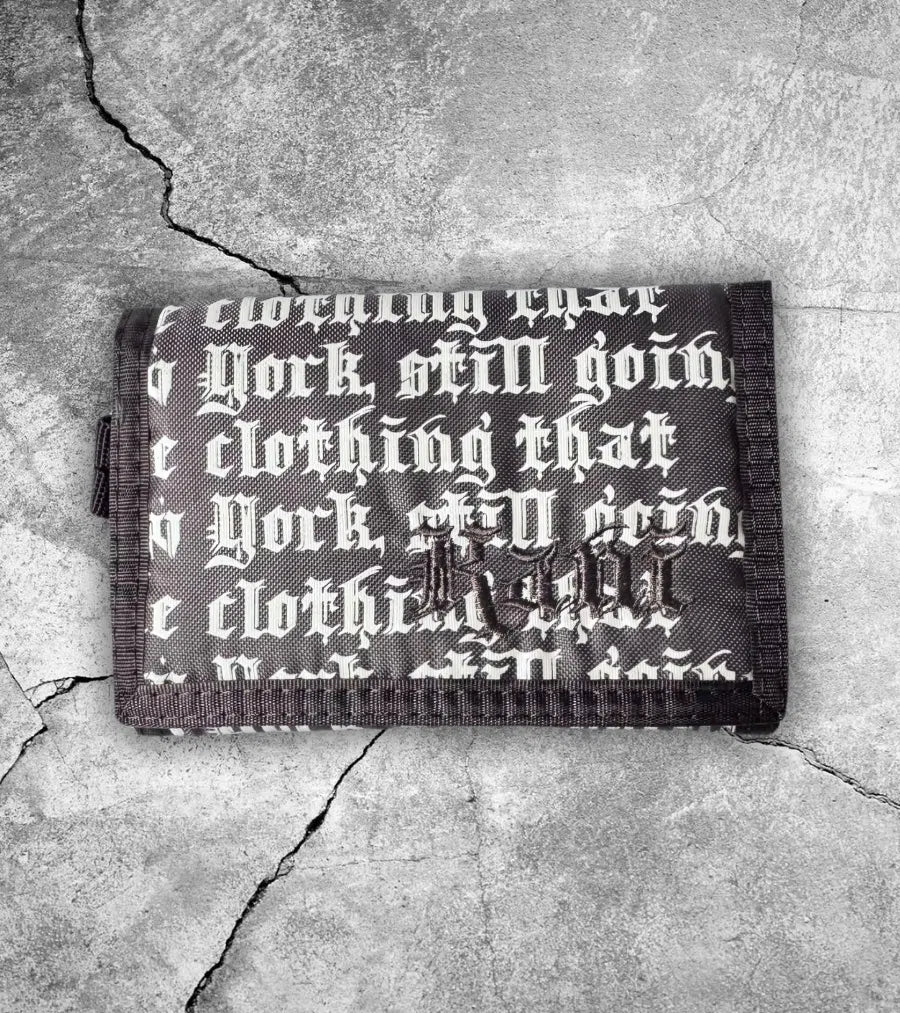 e clothing that
York, still going
e clothing that
York, still going
Kani
e clothing that
York still going